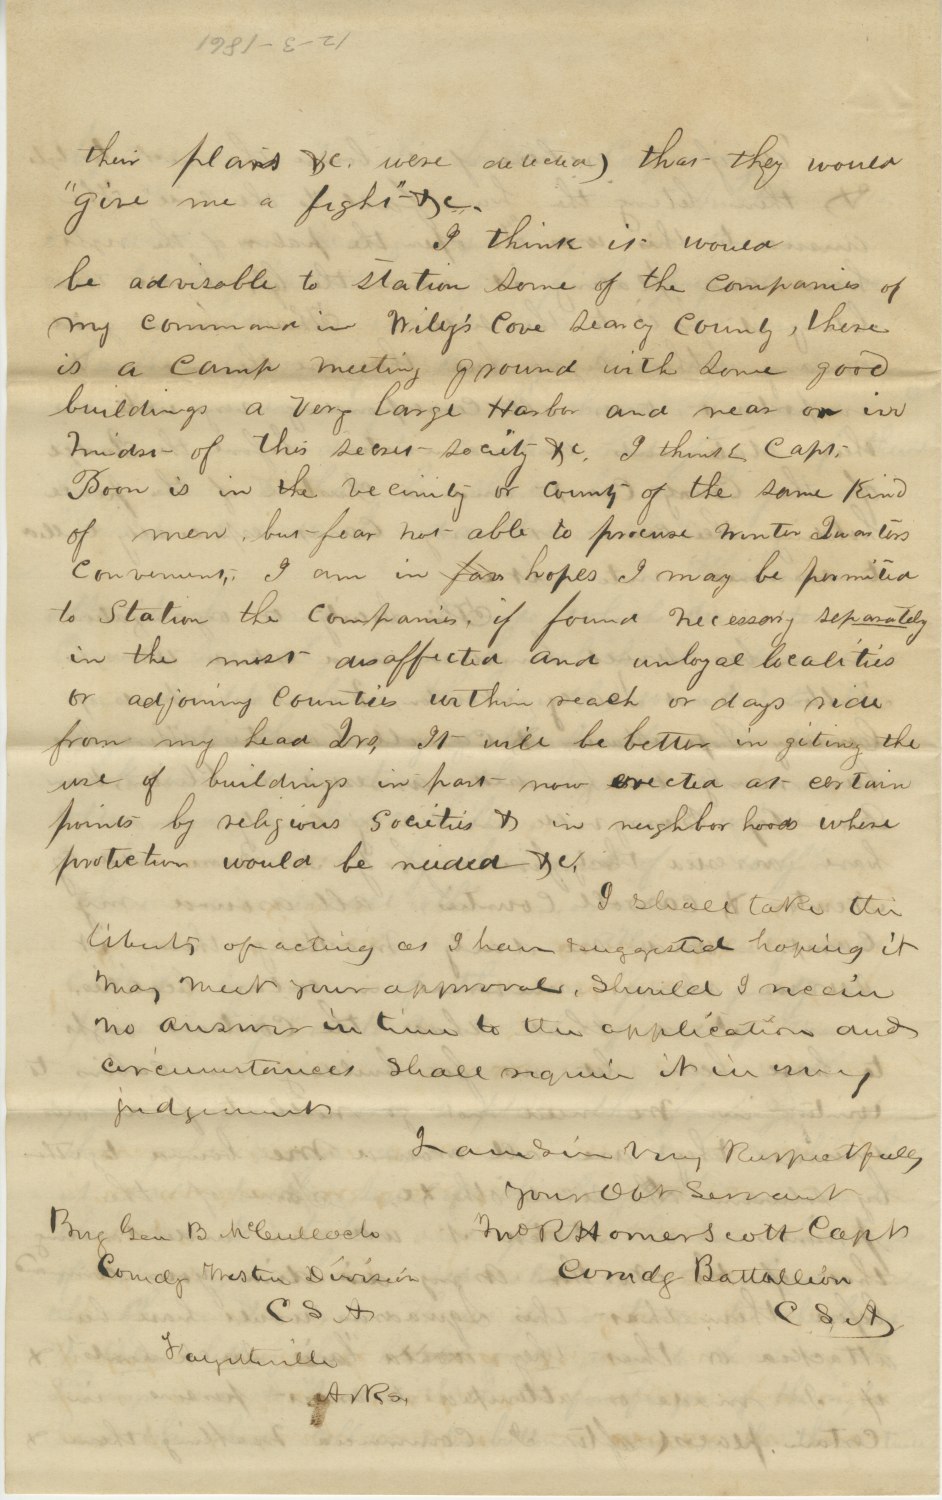 12-3-1861
their plans &c. were detected) that they would
"give me a fight" &c.
I think it would
be advisable to station some of the Companies of
my command in Wiley's Cove Searcy County, there
is a Camp meeting ground with some good
buildings a very large Harbor and near or in
midst of this secret society &c. I think Capt.
Boon is in the vecinity or county of the same kind
of men, but fear not able to procure winter Quarters
Convenient, I am in hopes I may be permited
to Station the Companies, if found necessary separately
in the most disaffected and unloyal localities
or adjoining Counties within reach or days ride
from my head Qrs, It will be better in giting the
use of buildings in part now erected at certain
points by religious Societies & in neighborhoods where
protection would be needed &c.
I shall take the
liberty of acting as I have suggested hoping it
may meet your approval, Should I receive
no answer in time to the application and
circumstances shall require it in my
judgement
I am Sir Very Respectfully
Your Obt Servant
Brig Gen B McCulloch
Jno R Homer Scott Capt
Comdg Western Division
Comdg Battallion
C S A
C S A
Fayetteville
Arks.